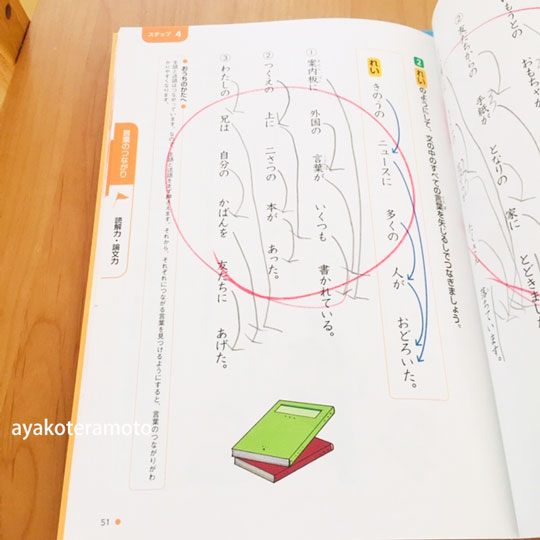 もうとの おもちゃが
② 友だちからの 手紙が となりの 家に とどきました
落ちています。
ステップ 4
2 れいのようにして、文の中のすべての言葉を矢じるしでつなぎましょう。
れい
きのうの ニュースに 多くの 人が おどろいた。
① 案内板に 外国の 言葉が いくつも 書かれている。
② つくえの 上に 二さつの 本が あった。
③ わたしの 兄は 自分の かばんを 友だちに あげた。
●おうちのかたへ●
言葉のつながり
読解力・論文力
51
ayakoteramoto